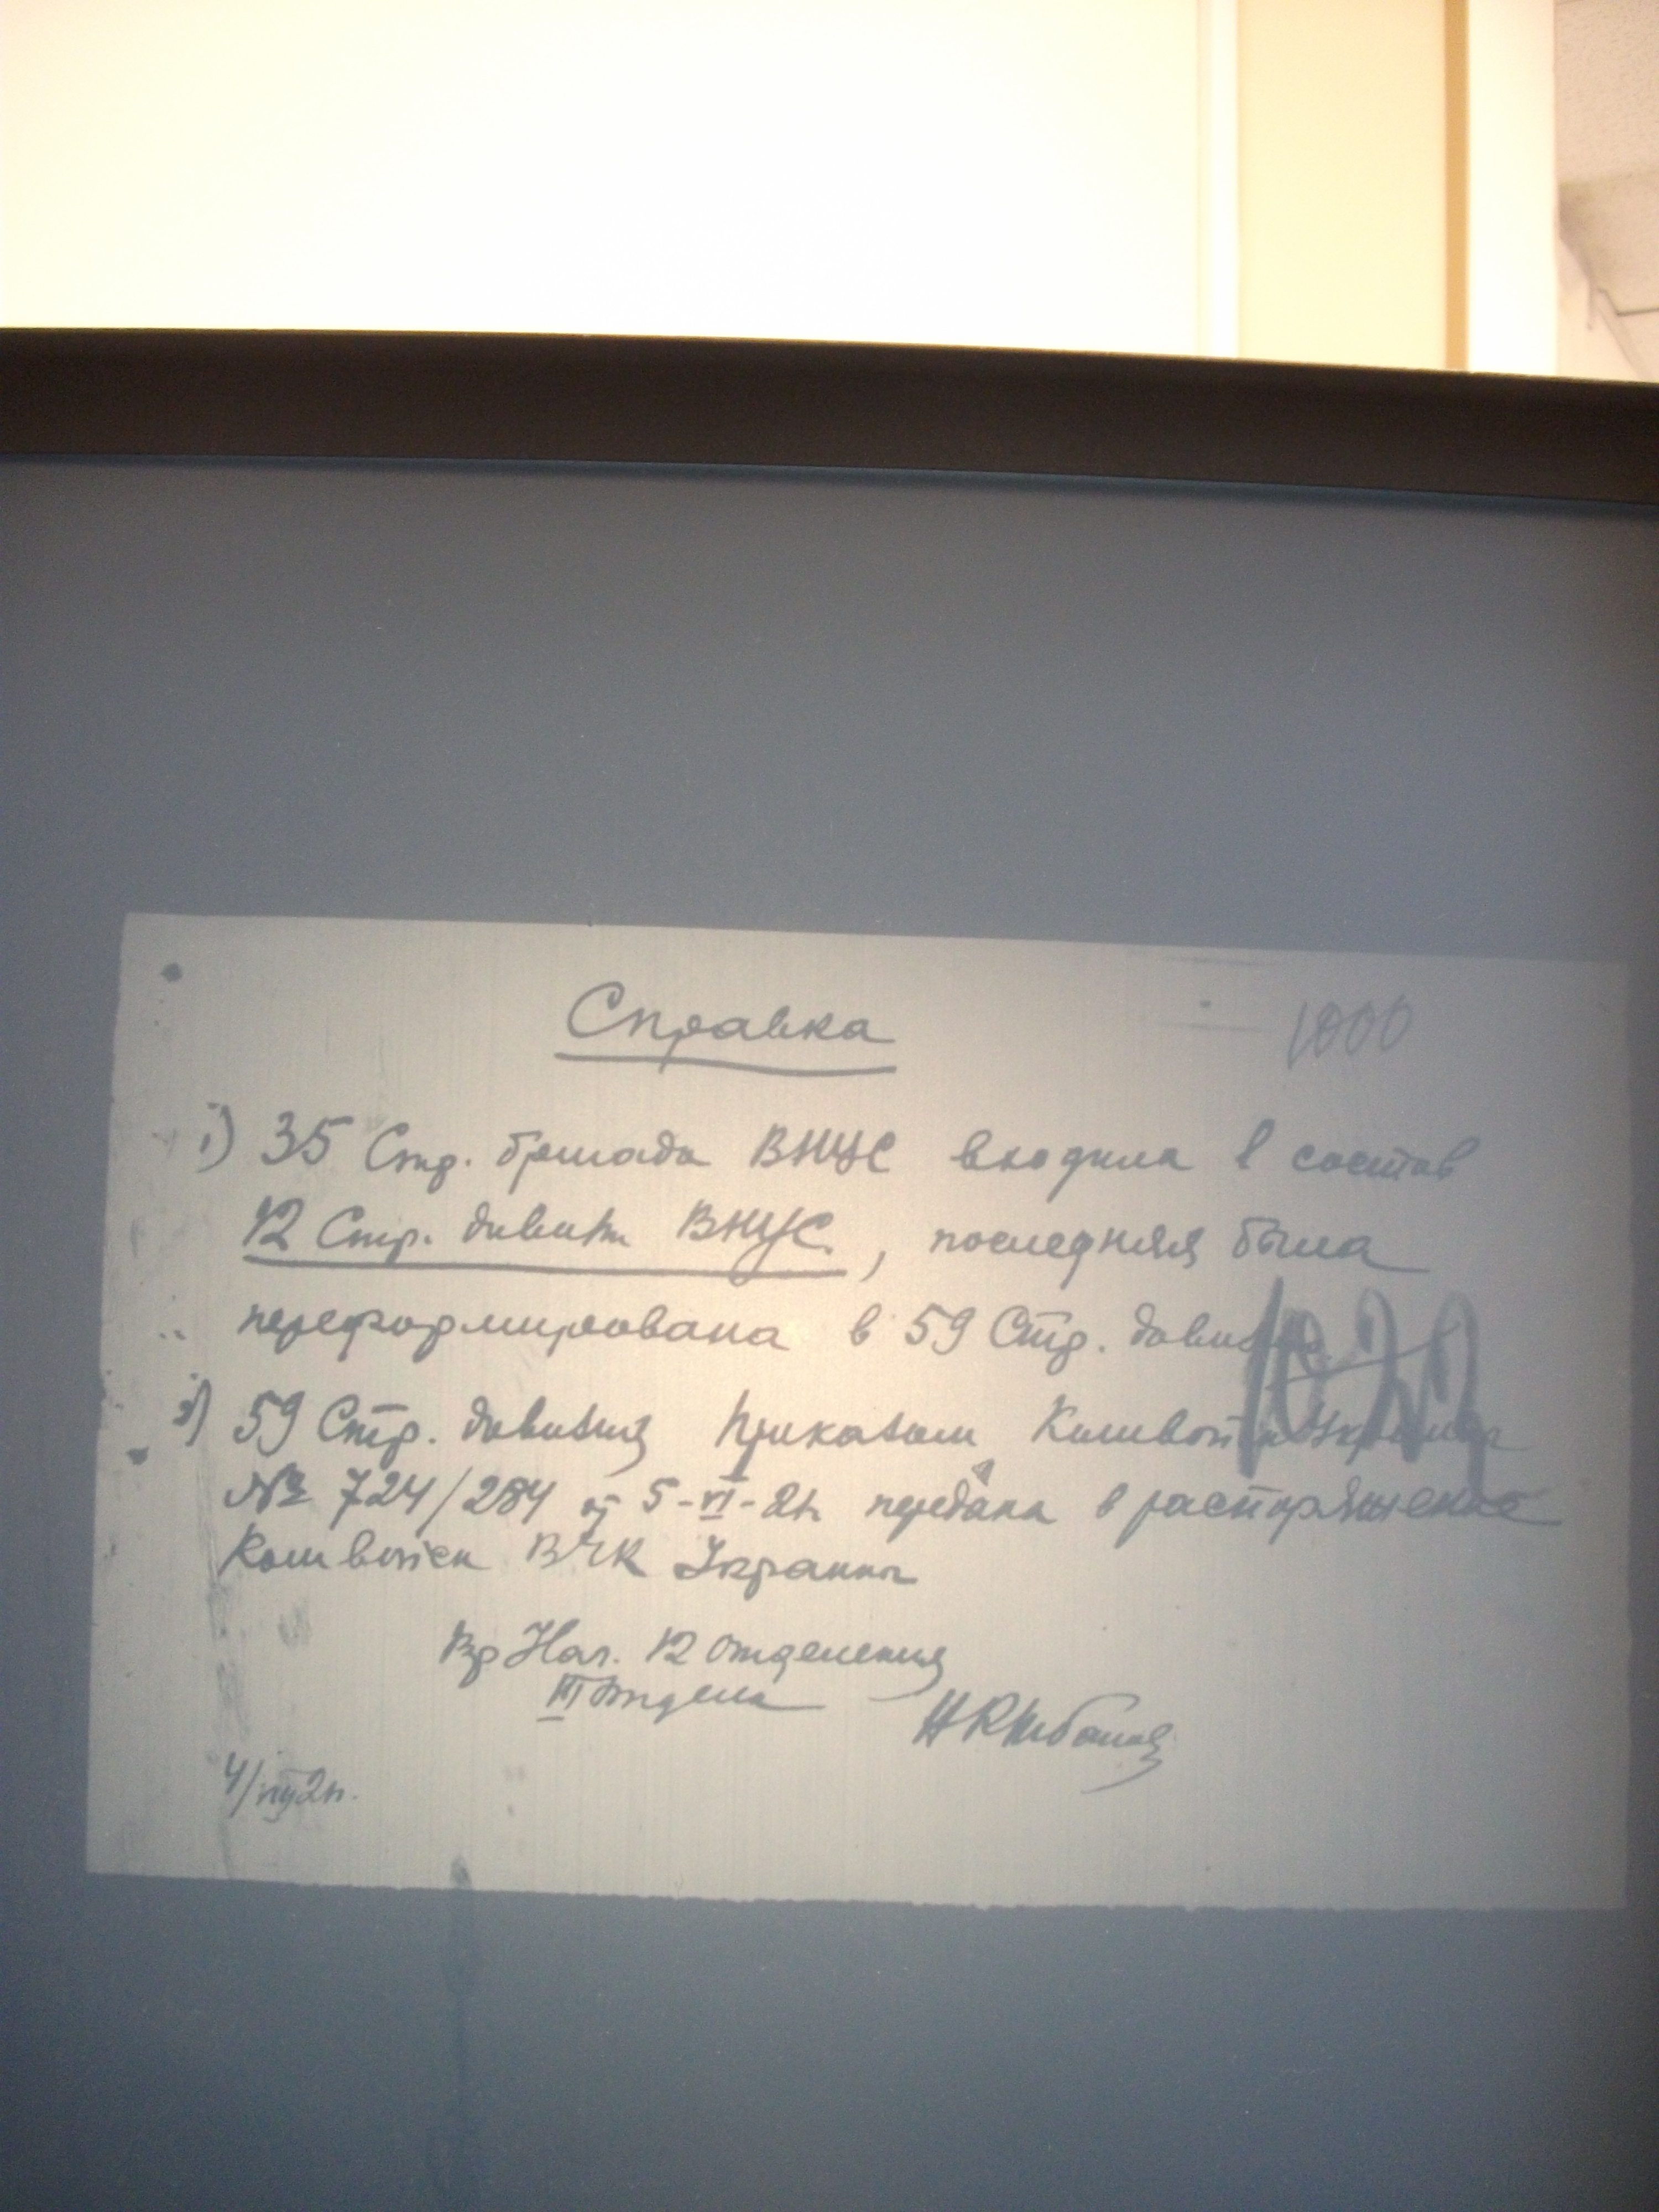 Справка
1000
1) 35 Стр. бригада ВНУС входила в состав
12 Стр. дивизии ВНУС, последняя была
переформирована в 59 Стр. дивизию.
2) 59 Стр. дивизия приказом Комвойск Украины
№ 724/284 от 5-VI-21г. передана в распоряжение
Комвойск ВЧК Украины
Вр Нач. 12 отделения
III отдела